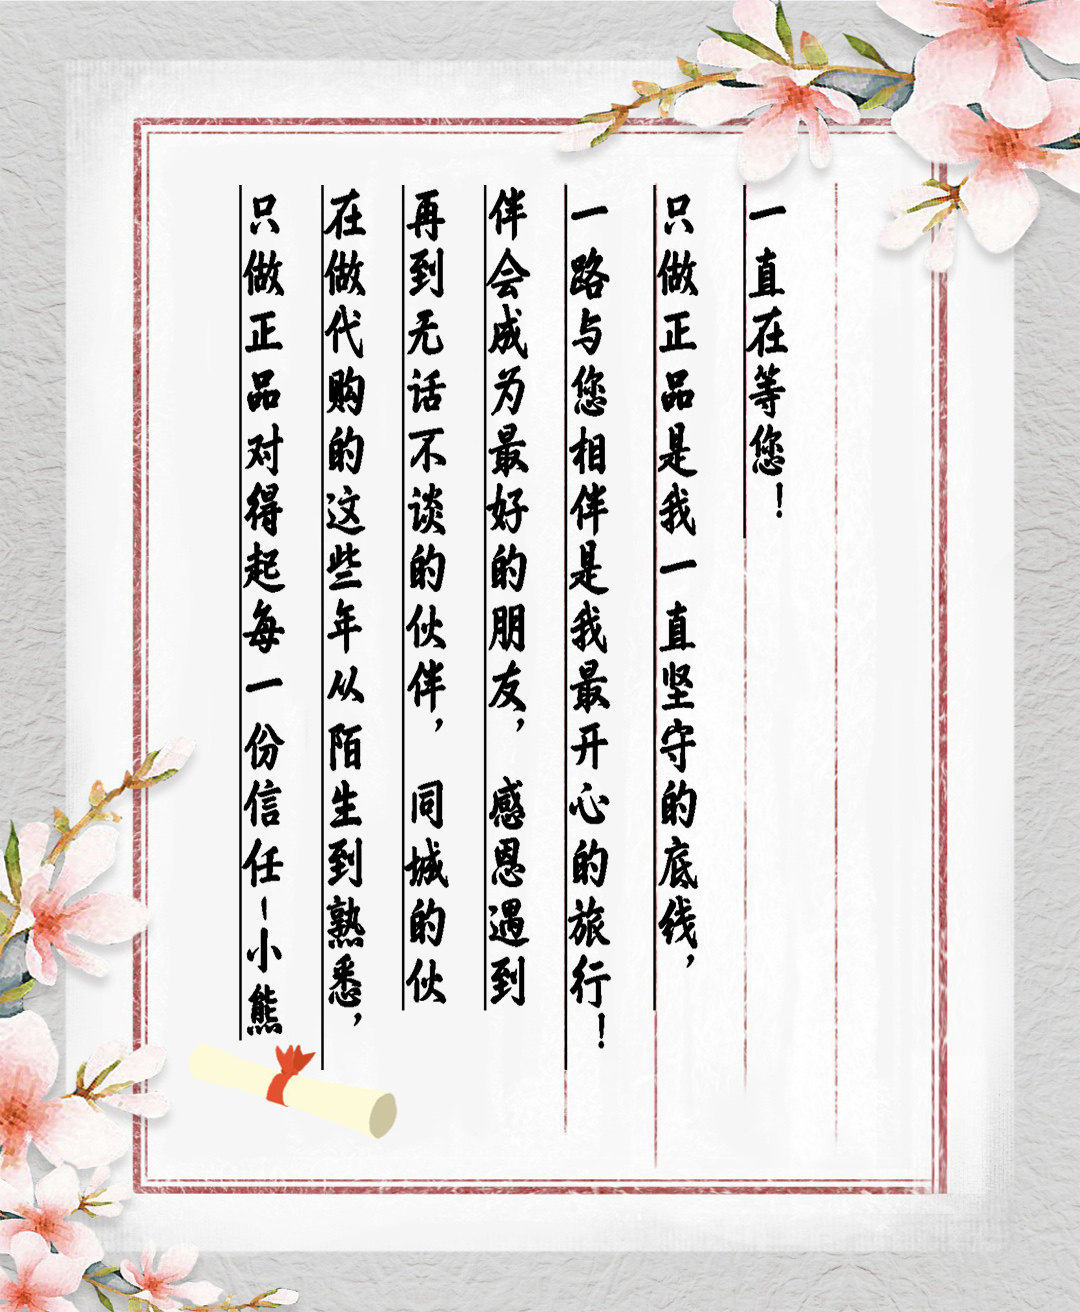 只做正品对得起每一份信任-小熊
在做代购的这些年从陌生到熟悉，
再到无话不谈的伙伴，同城的伙
伴会成为最好的朋友，感恩遇到
一路与您相伴是我最开心的旅行！
只做正品是我一直坚守的底线，
一直在等您！